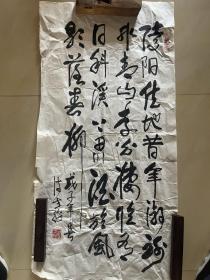 陵阳佳地昔年游谢
朓青山李白楼惟有
日斜溪上思酒旗风
影落春流